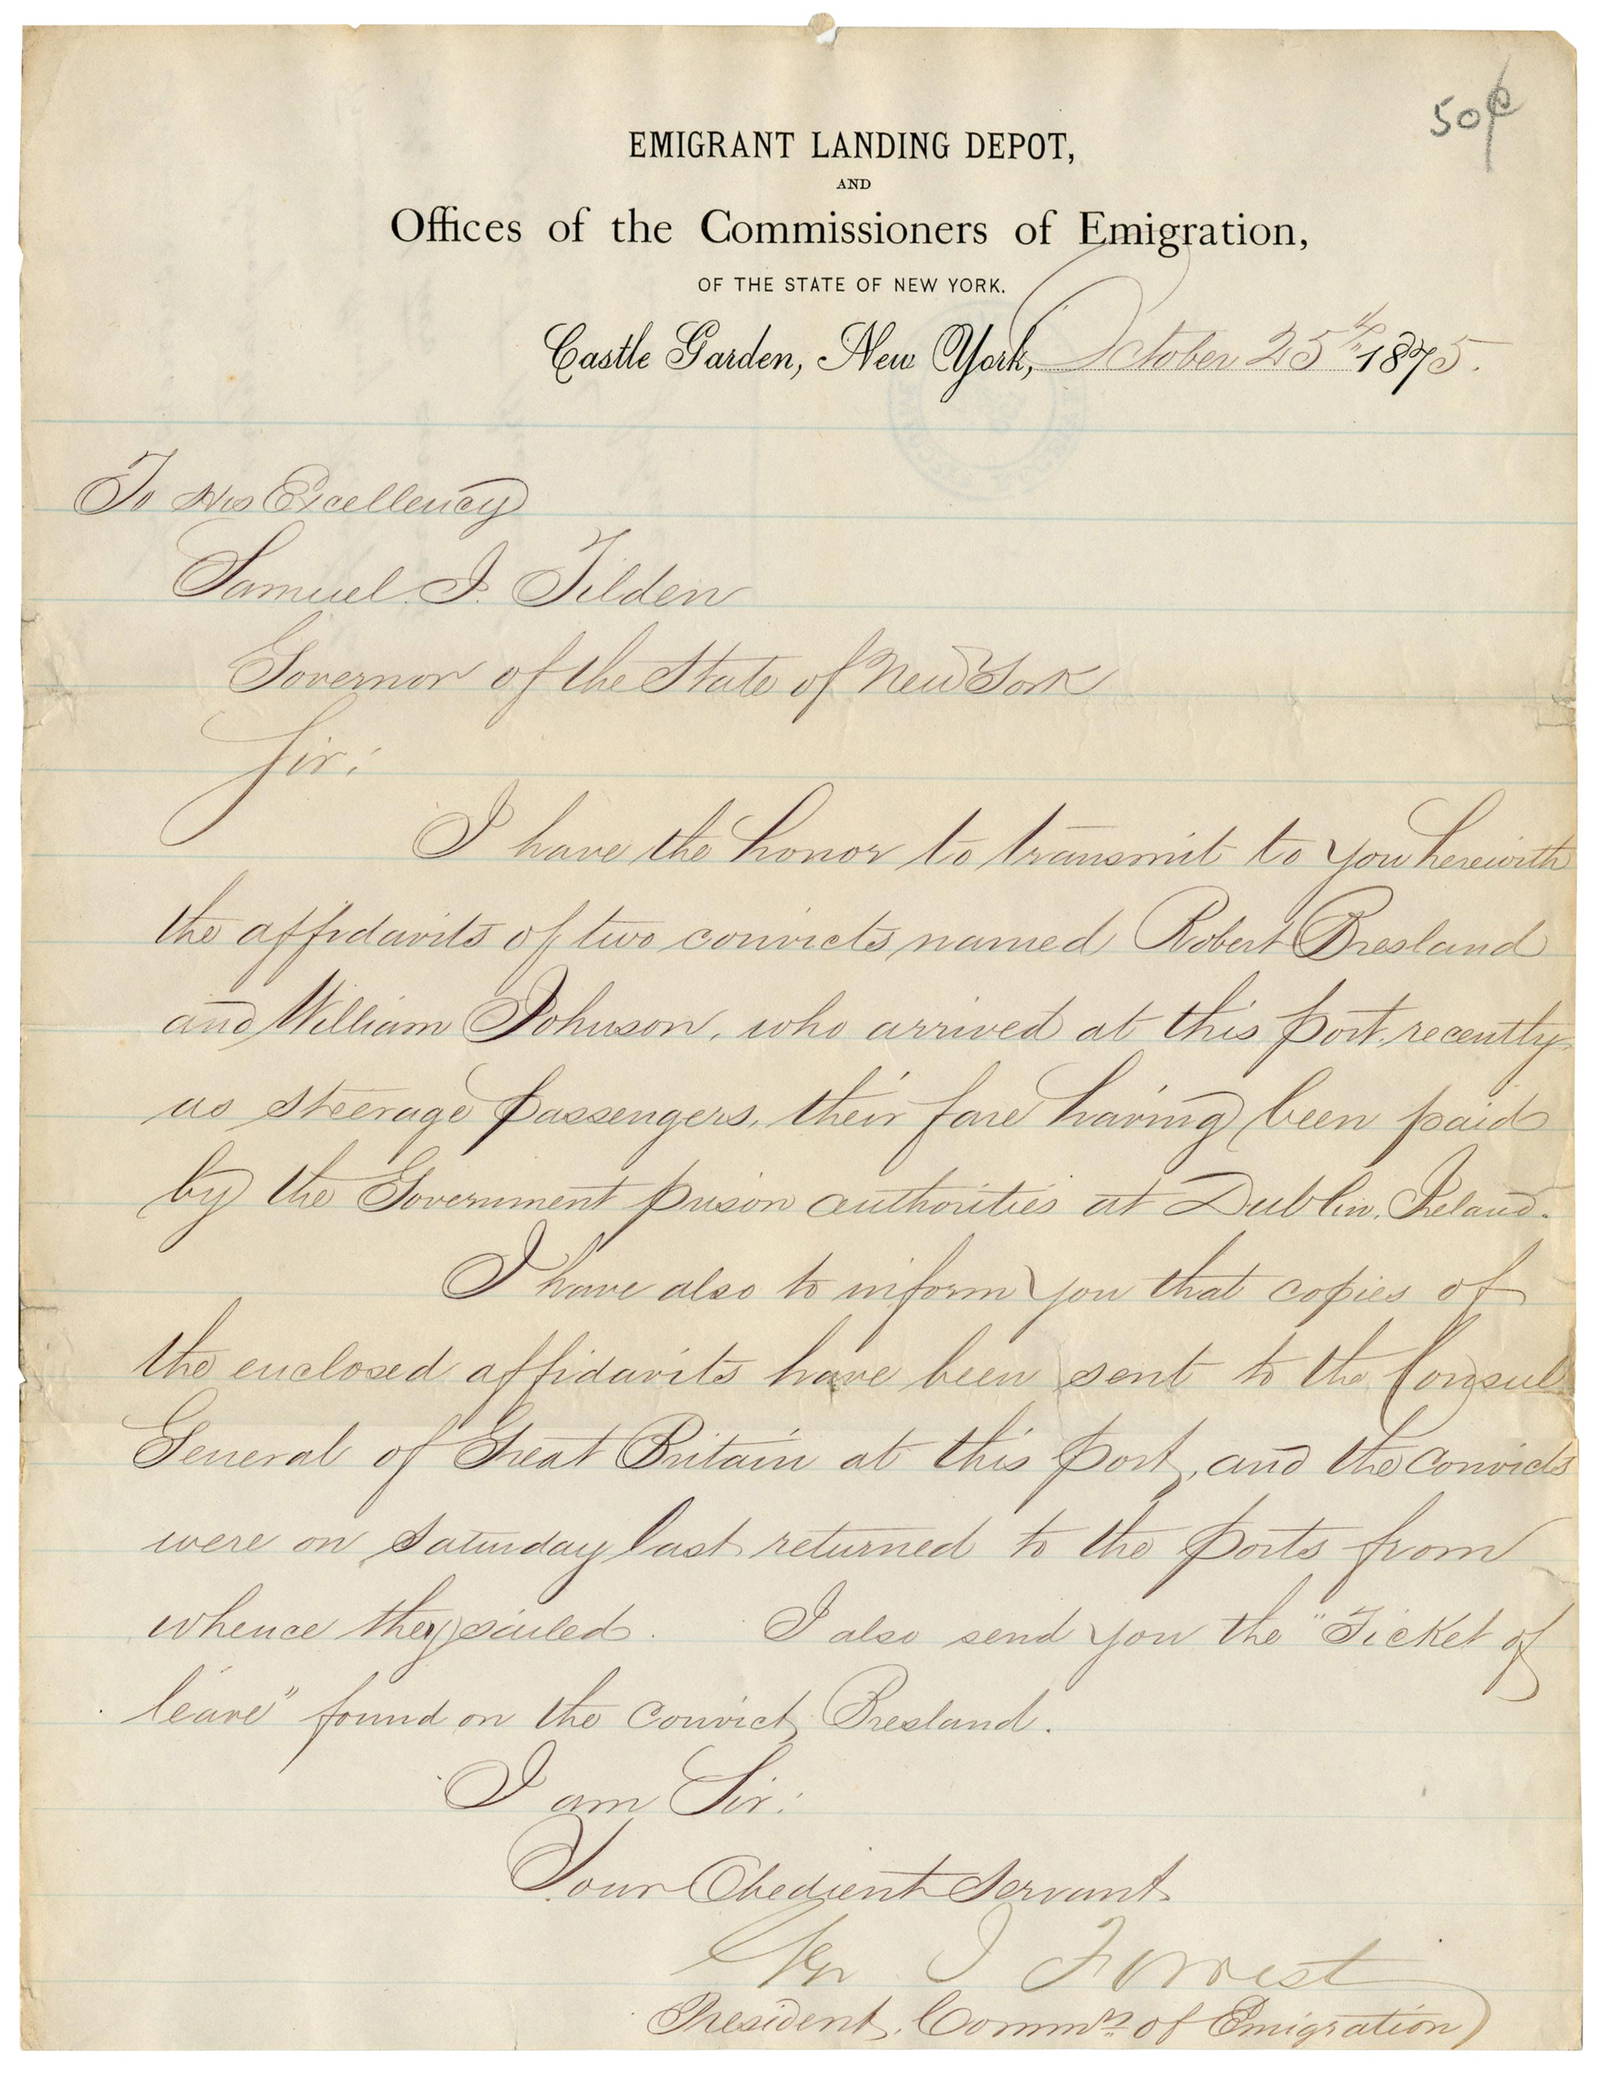 50¢
EMIGRANT LANDING DEPOT,
AND
Offices of the Commissioners of Emigration,
OF THE STATE OF NEW YORK.
Castle Garden, New York, October 25th 1875.
To His Excellency
Samuel J. Tilden
Governor of the State of New York
Sir:
I have the honor to transmit to you herewith
the affidavits of two convicts named Robert Bresland
and William Johnson, who arrived at this port, recently,
as steerage passengers, their fare having been paid
by the Government prison authorities at Dublin, Ireland.
I have also to inform you that copies of
the enclosed affidavits have been sent to the Consul
General of Great Britain at this port, and the convicts
were on Saturday last returned to the ports from
whence they sailed. I also send you the "Ticket of
leave" found on the convict, Bresland.
I am Sir:
Your Obedient Servant
Geo J Forrest
President, Commrs. of Emigration